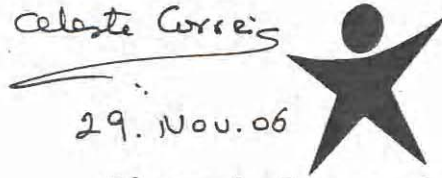 Celeste Correia
29. Nov. 06